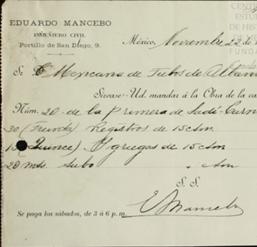 EDUARDO MANCEBO
INGENIERO CIVIL
Portillo de San Diego, 9.
México, Noviembre 22 de
Sr. Mexicana de Tubos de Alban
Sírvase Ud. mandar á la Obra de la ca
Núm. 20 de la primera de
30 (Treinta) Registros de 15 cm
15 (Quince) Y griegas de 15 cm
20 mts tubo cm
S. S.
E Mancebo
Se paga los sábados, de 3 á 6 p. m.